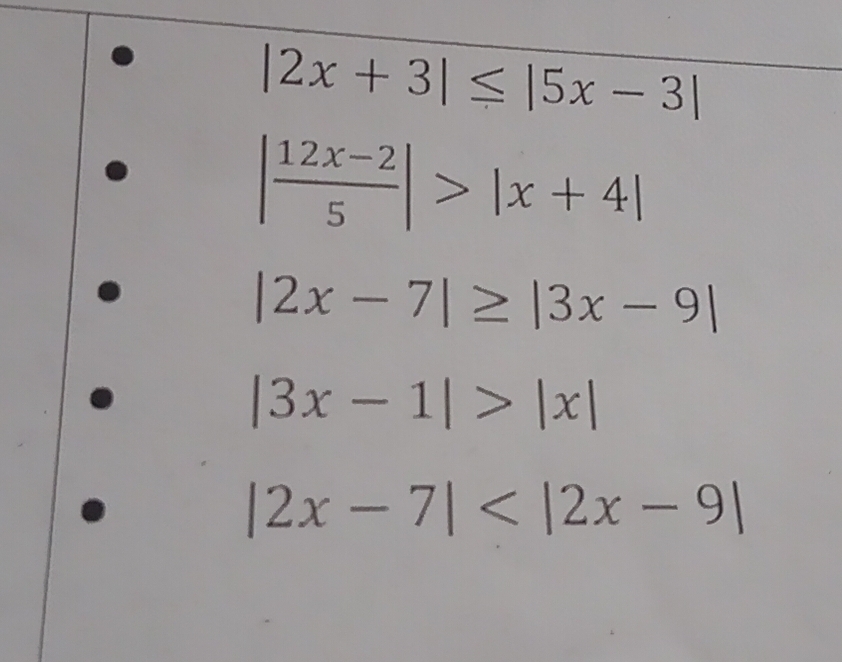 • |2x + 3| ≤ |5x − 3|
• |(12x−2)/5| > |x + 4|
• |2x − 7| ≥ |3x − 9|
• |3x − 1| > |x|
• |2x − 7| < |2x − 9|